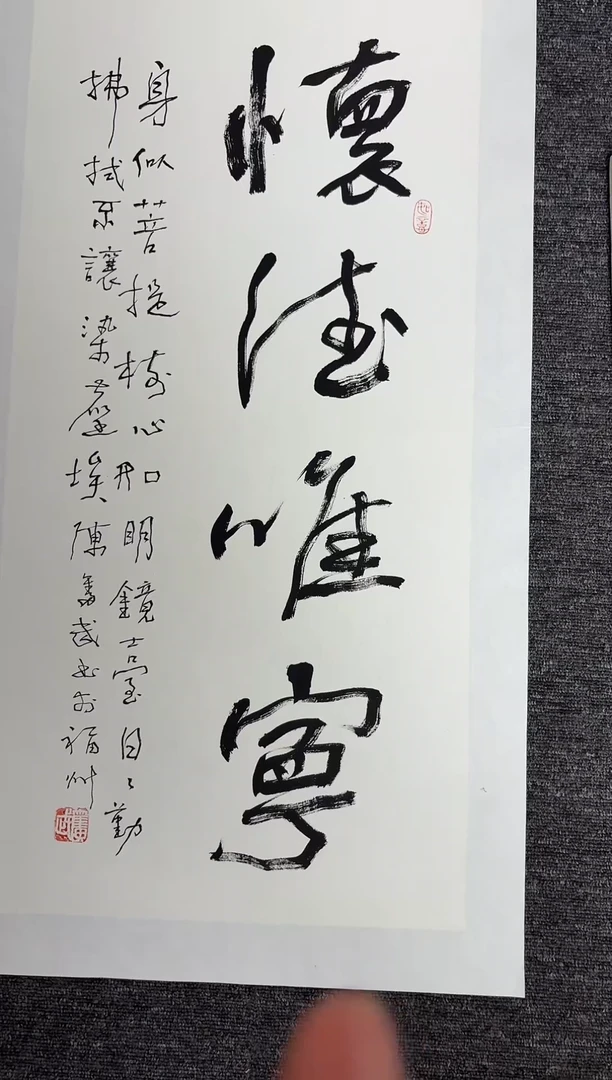 懷德唯寧
身似菩提樹心如明鏡臺日日勤
拂拭不讓染塵埃陳奮武書於福州